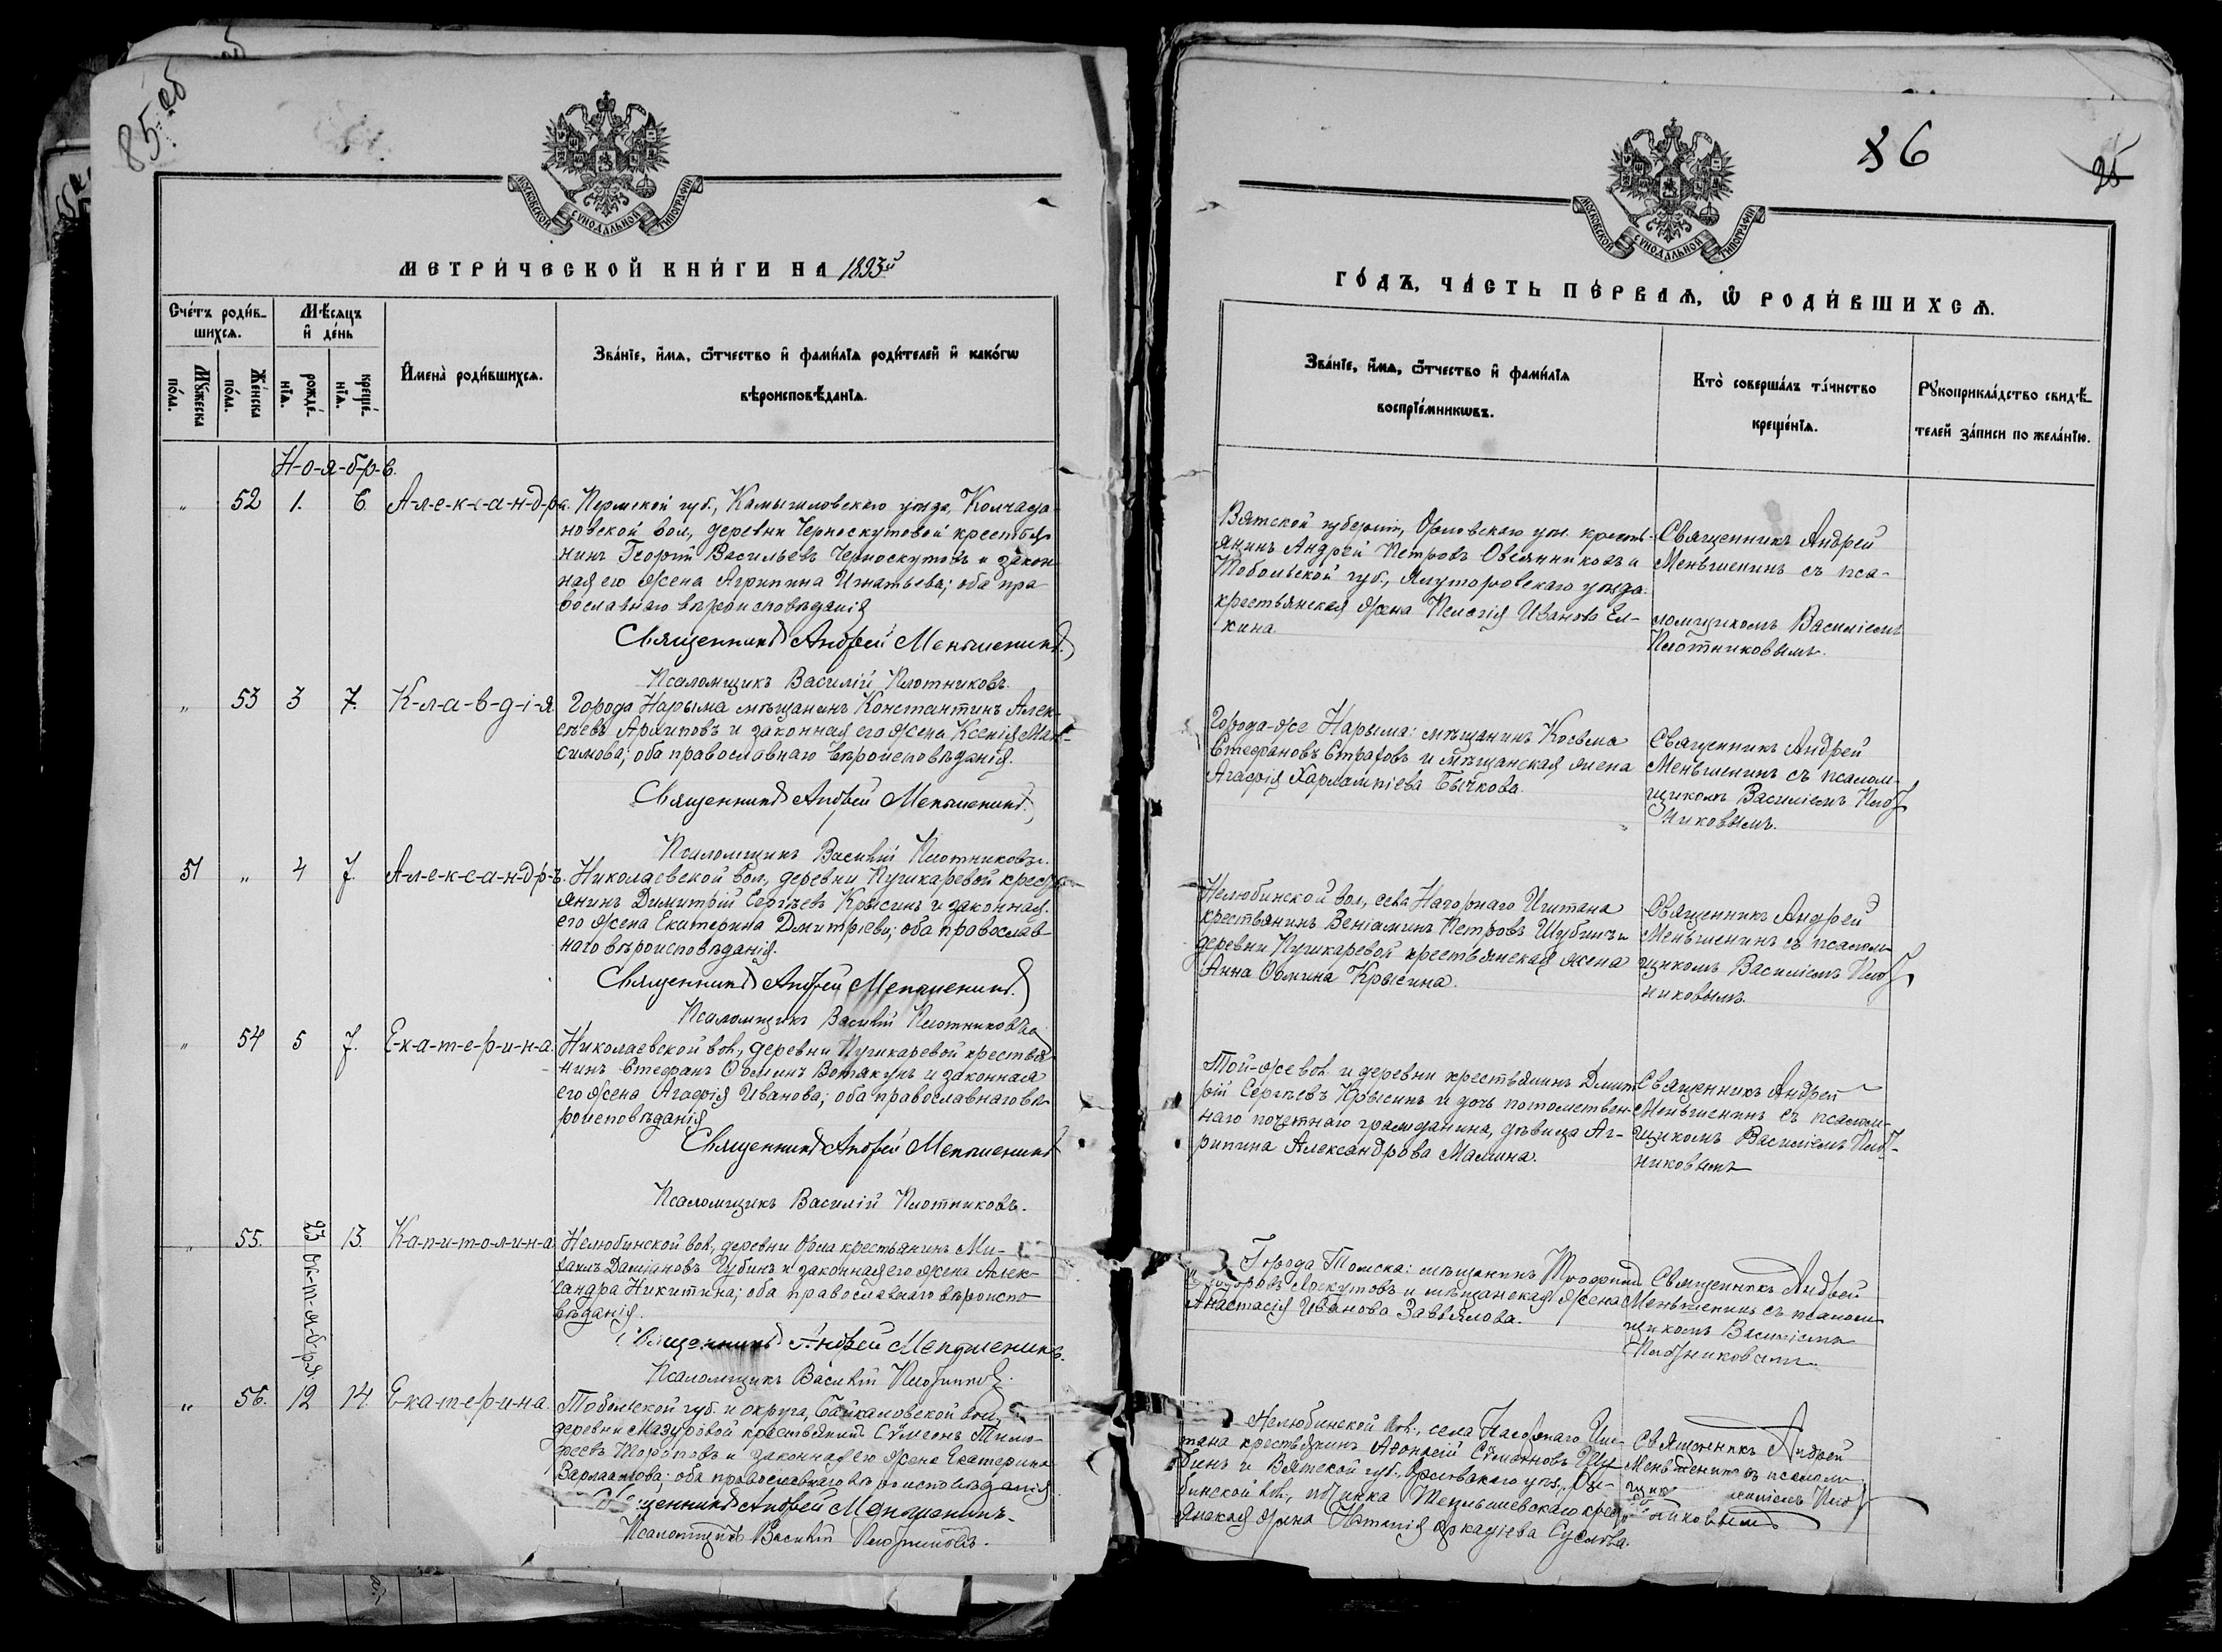 85 об
МОСКОВСКОЙ СѴНОДАЛЬНОЙ ТИПОГРАФІИ
МЕТРИ́ЧЕСКОЙ КНИ́ГИ НА 1893й
Сче́тъ роди́в-
шихсѧ.
Мѣ́сяцъ
и҆ де́нь
И҆мена̀ роди́вшихсѧ.
Зва́нїе, и҆́мѧ, ѻ҆́тчество и҆ фами́лїѧ роди́телей и҆ како́гѡ
вѣроисповѣ́данїѧ.
Мꙋ́жеска
по́ла.
Же́нска
по́ла.
рожде́-
нїѧ.
креще́-
нїѧ.
Н-о-я-б-р-ь.
„ 52 1. 6 А-л-е-к-с-а-н-д-р-а. Пермской губ., Камышловскаго уѣзда, Колчеда-
новской вол., деревни Черноскутовой крестья-
нинъ Георгій Васильевъ Черноскутовъ и закон-
ная его жена Агрипина Игнатьева; оба пра-
вославнаго вѣроисповѣданія
Священникъ Андрей Меньшенинъ.
Псаломщикъ Василій Плотниковъ.
„ 53 3 7. К-л-а-в-д-і-я. Города Нарыма мѣщанинъ Константинъ Алек-
сѣевъ Архиповъ и законная его жена Ксенія Мак-
симова; оба православнаго вѣроисповѣданія.
Священникъ Андрей Меньшенинъ.
Псаломщикъ Василій Плотниковъ.
51 „ 4 7. А-л-е-к-с-а-н-д-р-ъ. Николаевской вол., деревни Пушкаревой кресть-
янинъ Димитрій Сергѣевъ Крысинъ и законная
его жена Екатерина Дмитріева; оба православ-
наго вѣроисповѣданія.
Священникъ Андрей Меньшенинъ.
Псаломщикъ Василій Плотниковъ
„ 54 5 7. Е-к-а-т-е-р-и-н-а. Николаевской вол., деревни Пушкаревой крестья-
нинъ Стефанъ Ѳоминъ Вотякунъ и законная
его жена Агафія Иванова; оба православнаго вѣ-
роисповѣданія
Священникъ Андрей Меньшенинъ
Псаломщикъ Василій Плотниковъ.
„ 55. 23 ок-т-я-б-ря. 13. К-а-п-и-т-о-л-и-н-а. Нелюбинской вол., деревни Орла крестьянинъ Ми-
хаилъ Даміановъ Губинъ и законная его жена Алек-
сандра Никитина; оба православнаго вѣроиспо-
вѣданія.
Священникъ Андрей Меньшенинъ.
Псаломщикъ Василій
„ 56. 12 14 Е-ка-т-е-р-и-н-а. Тобольской губ. и округа, Байкаловской вол.,
деревни Мазуровой крестьянинъ Сѵмеонъ Тимо-
феевъ Тороповъ и законная его жена Екатерина
Варлаамова; оба православнаго вѣроисповѣданія
Священникъ Андрей Меньшенинъ.
Псаломщикъ Василій Плотниковъ.
86
25
МОСКОВСКОЙ СѴНОДАЛЬНОЙ ТИПОГРАФІИ
ГО́ДЪ, ЧА́СТЬ ПЕ́РВАѦ, Ѡ҆ РОДИ́ВШИХСѦ.
Зва́нїе, и҆́мѧ, ѻ҆́тчество и҆ фами́лїѧ
воспрїе́мникѡвъ.
Кто̀ соверша́лъ та́инство
креще́нїѧ.
Рꙋкоприкла́дство свидѣ́-
телей за́писи по жела́нїю.
Вятской губерніи, Орловскаго уѣз. кресть-
янинъ Андрей Петровъ Овсянниковъ и
Тобольской губ., Ялуторовскаго уѣзда
крестьянская жена Пелагія Иванова Ел-
кина.
Священникъ Андрей
Меньшенинъ съ пса-
ломщикомъ Василіемъ
Плотниковымъ.
Города-же Нарыма: мѣщанинъ Косьма
Стефановъ Страховъ и мѣщанская жена
Агафія Харлампіева Бычкова.
Священникъ Андрей
Меньшенинъ съ псалом-
щикомъ Василіемъ Плот-
никовымъ.
Нелюбинской вол., села Нагорнаго Иштана
крестьянинъ Веніаминъ Петровъ Шубинъ и
деревни Пушкаревой крестьянская жена
Анна Ѳомина Крысина.
Священникъ Андрей
Меньшенинъ съ псалом-
щикомъ Василіемъ Плот-
никовымъ.
Той-же вол. и деревни крестьянинъ Дмит-
рій Сергѣевъ Крысинъ и дочь потомствен-
наго почетнаго гражданина, дѣвица Аг-
рипина Александрова Малина.
Священникъ Андрей
Меньшенинъ съ псалом-
щикомъ Василіемъ Плот-
никовымъ
Города Томска: мѣщанинъ Трофимъ
и мѣщанская жена
Анастасія Иванова Завьялова.
Священникъ Андрей
Меньшенинъ съ псалом-
щикомъ Василіемъ
Плотниковымъ.
Нелюбинской вол., села Нагорнаго Иш-
тана крестьянинъ Аѳонасій Сѵмеоновъ Шу-
бинъ и Вятской губ., Орловскаго уѣз.,
бинской вол., починка крес-
янская жена Наталія Аркадіева Суслова.
Священникъ Андрей
Меньшенинъ съ псалом-
щик василіемъ Плот-
никовымъ